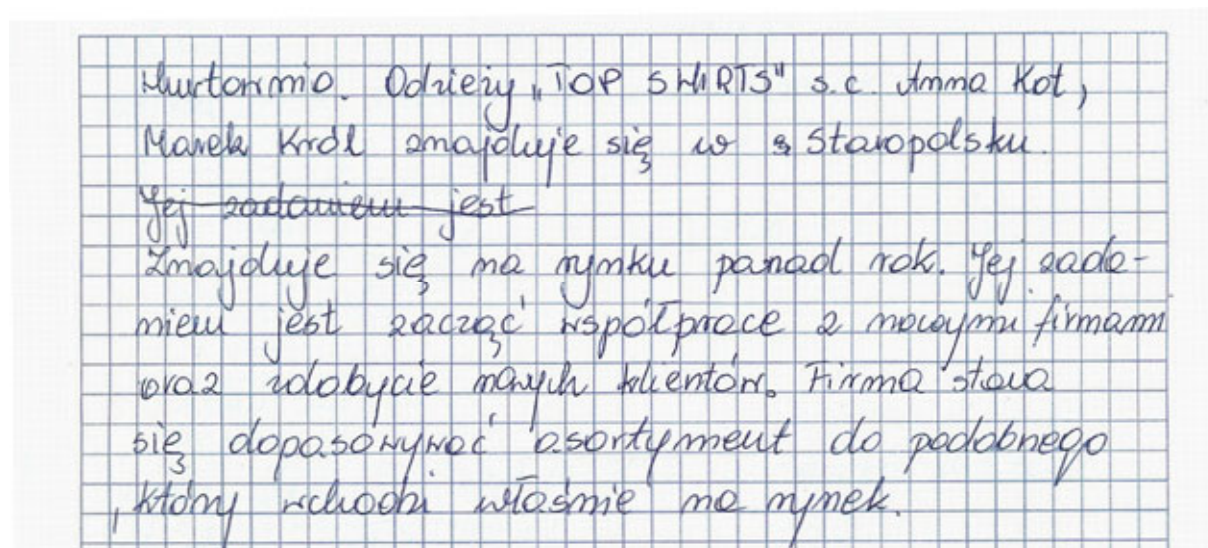 Hurtownia Odzieży „TOP SHIRTS" s.c. Anna Kot,
Marek Król znajduje się w Staropolsku.
Jej zadaniem jest
Znajduje się na rynku ponad rok. Jej zada-
niem jest zacząć współprace z nowymi firmami
oraz zdobycie nowych klientów. Firma stara
się dopasowywać asortyment do podobnego
, który wchodzi właśnie na rynek.